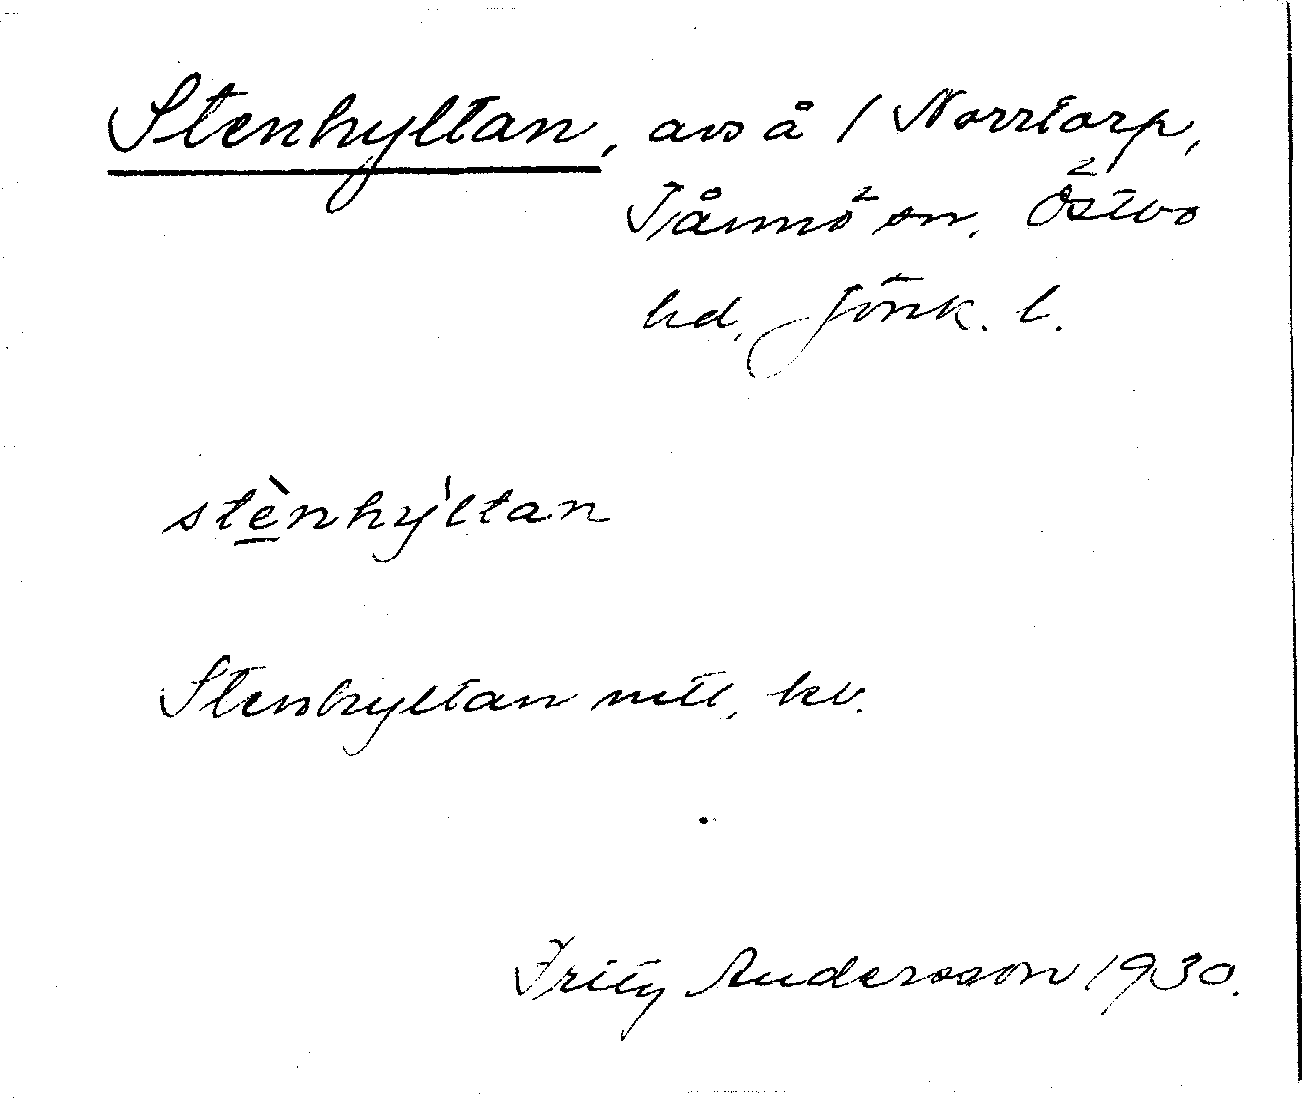 Stenhyltan, avs å / Norrtorp,
Tånnö sn. Östbo
hd, Jönk. l.
stènhy̍ltan
Stenhyltan mtl, kv.
Fritz Andersson 1930.